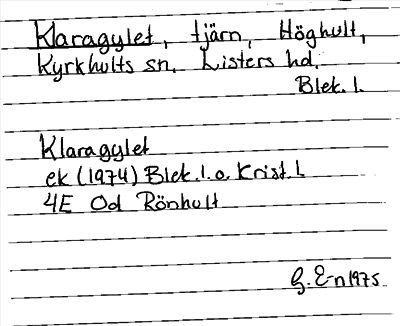 Klaragylet, tjärn, Höghult,
Kyrkhults sn. Listers hd.
Blek. l.
Klaragylet
ek (1974) Blek. l. o. Krist. l.
4E Od Rönhult
G. E-n 1975